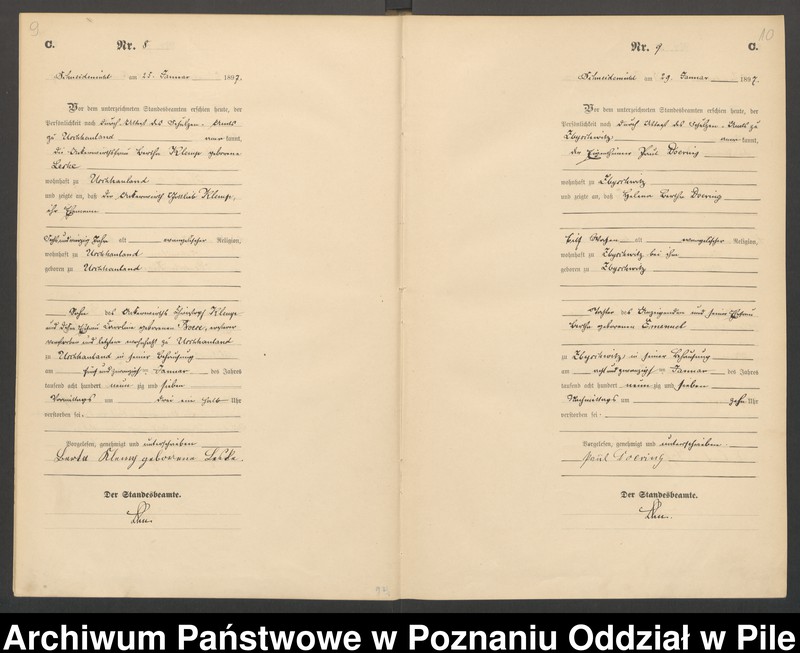 9
C. Nr. 8
Schneidemühl am 25. Januar 1897.
Vor dem unterzeichneten Standesbeamten erschien heute, der
Persönlichkeit nach durch Attest des Schulzen-Amts
zu kannt,
die Bertha Klemp geborene
Leske
wohnhaft zu
und zeigte an, daß der Gottlieb Klemp,
ihr Ehemann
Jahre alt evangelischer Religion,
wohnhaft zu
geboren zu
Sohn des Klemp
und dessen Ehefrau geborenen
verstorben und letztere wohnhaft zu
zu in seiner Behausung
am fünfundzwanzigsten Januar des Jahres
tausend acht hundert neunzig und sieben
Vormittags um drei ein halb Uhr
verstorben sei.
Vorgelesen, genehmigt und unterschrieben
Berta Klemp geborene Leske.
Der Standesbeamte.
10
Nr. 9 C.
Schneidemühl am 29. Januar 1897.
Vor dem unterzeichneten Standesbeamten erschien heute, der
Persönlichkeit nach durch Attest des Schulzen-Amts zu
Zbyschewitz kannt,
der Eigenthümer Paul Doering
wohnhaft zu Zbyschewitz
und zeigte an, daß Helene Bertha Doering
fünf Wochen alt evangelischer Religion,
wohnhaft zu Zbyschewitz bei ihm
geboren zu Zbyschewitz
Tochter des Anzeigenden und seiner Ehefrau
Bertha geborenen
zu Zbyschewitz in seiner Behausung
am achtundzwanzigsten Januar des Jahres
tausend acht hundert neunzig und sieben
Nachmittags um zehn Uhr
verstorben sei.
Vorgelesen, genehmigt und unterschrieben
Paul Doering
Der Standesbeamte.
Archiwum Państwowe w Poznaniu Oddział w Pile